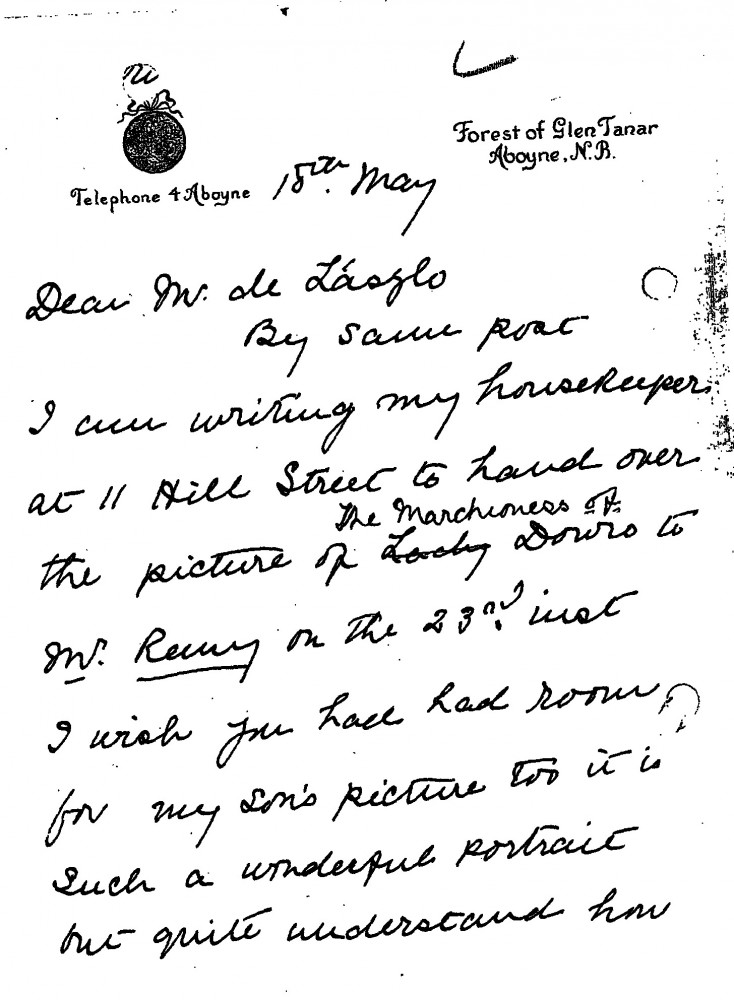 Forest of Glen Tanar
Aboyne, N.B.
Telephone 4 Aboyne
18th. May
Dear Mr. de László
By same post
I am writing my housekeeper
at 11 Hill Street to hand over
The Marchioness of
the picture of Lady Douro to
Mr. Remy on the 23rd. inst
I wish you had had room
for my son's picture too it is
such a wonderful portrait
but quite understand how